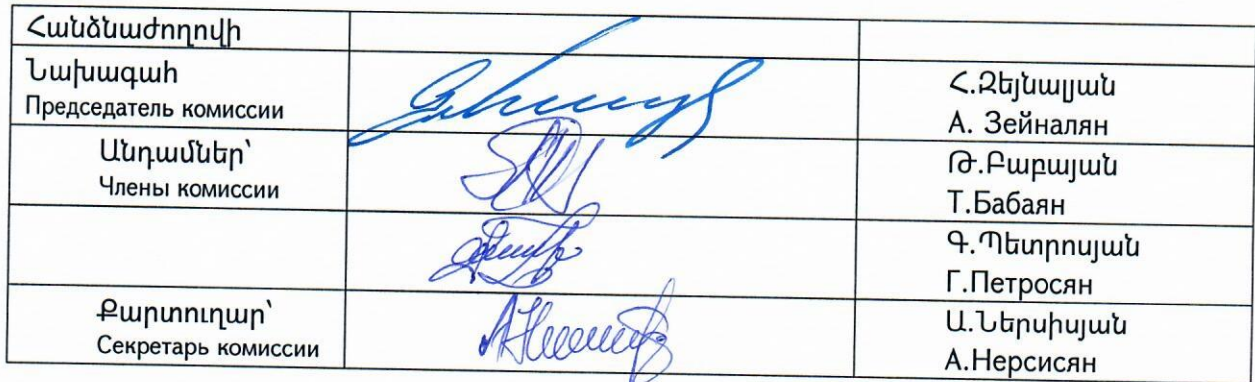 Հանձնաժողովի
Նախագահ
Председатель комиссии
Հ.Զեյնալյան
А. Зейналян
Անդամներ՝
Члены комиссии
Թ.Բաբայան
Т.Бабаян
Գ.Պետրոսյան
Г.Петросян
Քարտուղար՝
Секретарь комиссии
Ա.Ներսիսյան
А.Нерсисян